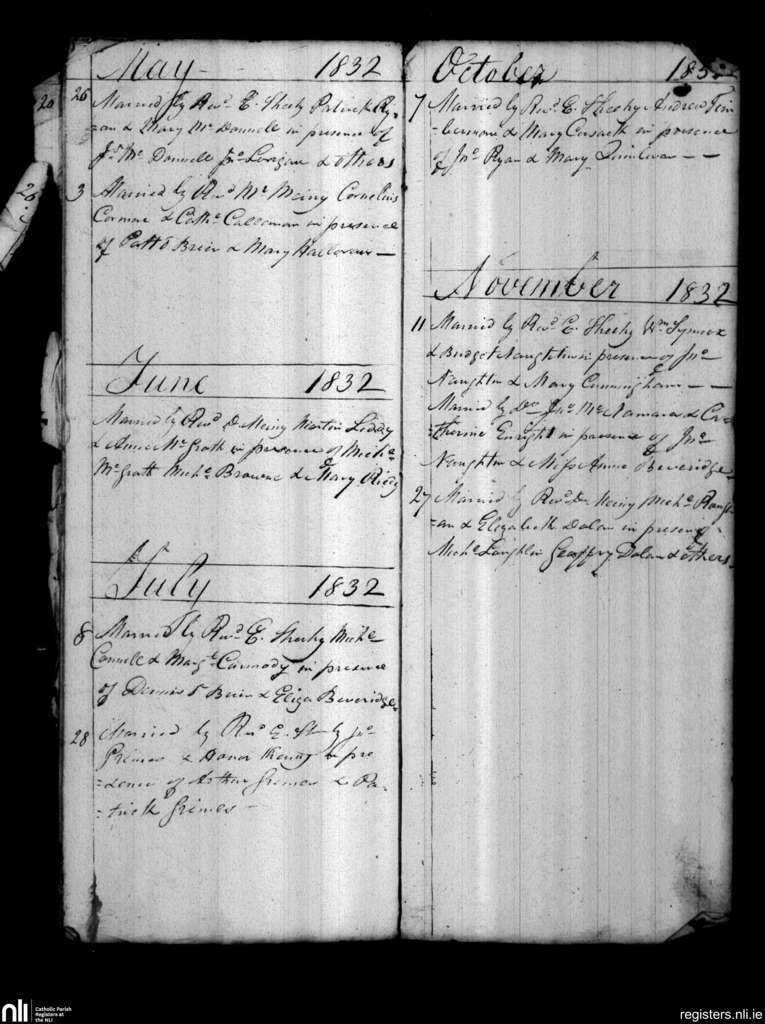 May 1832
20
26 Married by Revd. E. Sheehy Patrick Ry-
=an & Mary Mc Donnell in presence of
Mc Donnell Jno. & others
26
3 Married by Revd Mr Meiny Cornelius
& Cathe. in presence
of Patt O Brien & Mary
June 1832
Married by Revd D. Meiny Martin Liddy
& Anne McGrath in presence of Michl.
McGrath Michl. Browne & Mary
July 1832
8 Married by Revd. E. Sheehy Michl
Connell & Margt. Carmody in presence
of Dennis O Brien & Eliza Beveridge
28 Married by Revd E. Sheehy Jno.
& Honor Kenny in pre
=sence of Arthur Grimes & Pa-
=trick Grimes
October 183
7 Married by Revd. E. Sheehy Andrew
& Mary in presence
of Jno. Ryan & Mary
November 1832
11 Married by Revd. E. Sheehy Wm
& Bridget Naughton in presence of Jno.
Naughton & Mary Cunningham
Married by Do. Jno. McNamara & Ca-
=therine Enright in presence of Jno.
Naughton & Miss Anne Beveridge
27 Married by Revd. D. Meiny Michl.
=an & Elizabeth Dolan in presence
Michl Laughlin Geoffry Dolan & others
nli
Catholic Parish
Registers at
the NLI
registers.nli.ie